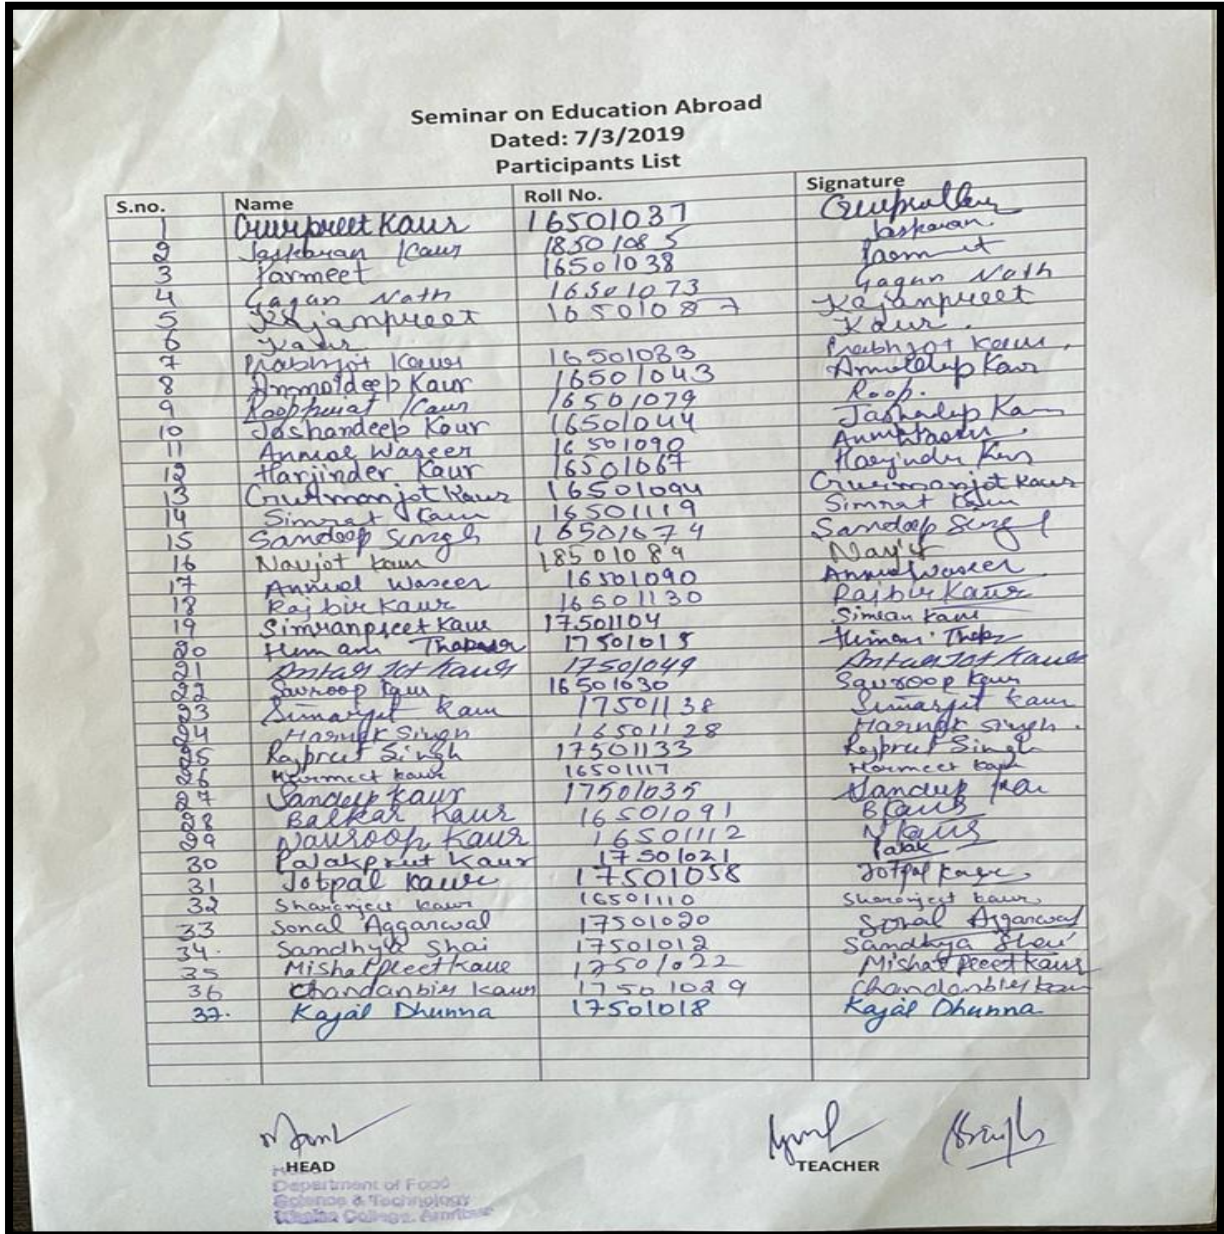 Seminar on Education Abroad
Dated: 7/3/2019
Participants List
S.no. Name Roll No. Signature
1 Gurpreet Kaur 16501037
2 Jaskaran Kaur 18501085 Jaskaran
3 Parmeet 16501038
4 Gagan Nath 16501073 Gagan Nath
5 Kajanpreet 16501087 Kajanpreet
6 Kaur Kaur.
7 Prabhjot Kaur 16501033 Prabhjot Kaur.
8 Anmoldeep Kaur 16501043 Kaur
9 Kaur 16501079 Roop.
10 Jashandeep Kour 16501044
11 Anmol Waseer 16501090
12 Harjinder Kaur 16501067
13 Gurmanjot Kaur 16501094 Gurmanjot Kaur
14 Simrat Kaur 16501119 Simrat Kaur
15 Sandeep Singh 16501674 Sandeep Singh
16 Navjot Kaur 18501089
17 Anmol Waseer 16501090 Anmol Waseer
18 Rajbir Kaur 16501130 Rajbir Kaur
19 Simranpreet Kaur 17501104 Simran Kaur
20 17501015
21 Kaur 17501049 Kaur
22 Kaur 16501030 Kaur
23 Simarjit Kaur 17501138 Simarjit Kaur
24 Singh 16501128 Singh.
25 Rajpreet Singh 17501133 Rajpreet Singh
26 Harmeet Kaur 16501117 Harmeet Kaur
27 Sandeep Kaur 17501035 Sandeep
28 Balkar Kaur 16501091 BKaur
29 Navroop Kaur 16501112 NKaur
30 Palakprut Kaur 17501021 Palak
31 Jotpal Kaur 17501058 Jotpal Kaur
32 Sharanjeet Kaur 16501110 Sharanjeet Kaur
33 Sonal Aggarwal 17501020 Sonal Aggarwal
34. Sandhya Shai 17501012 Sandhya
35 Kaur 17501022 Kaur
36 Chandanbir Kaur 17501029 Chandanbir Kaur
37. Kajal Dhunna 17501018 Kajal Dhunna
HEAD TEACHER
Department of Food
Science & Technology
Khalsa College, Amritsar